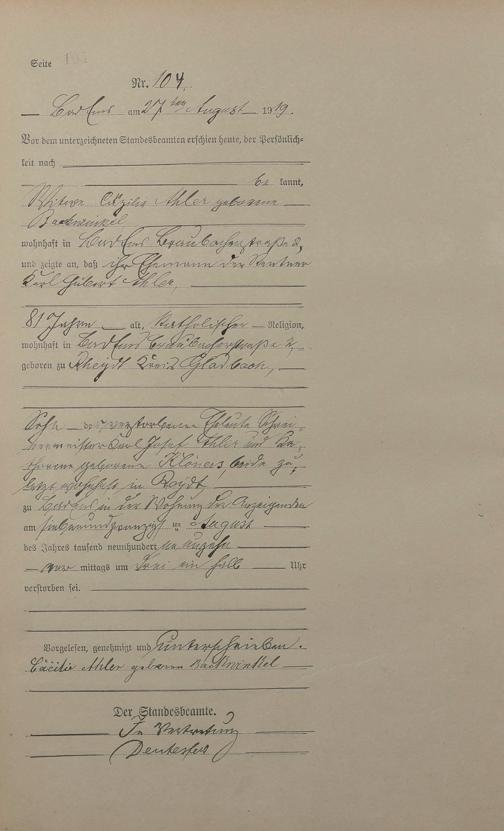 Seite 105
Nr. 104.
Bad Ems am 27ten August 1919.
Vor dem unterzeichneten Standesbeamten erschien heute, der Persönlich-
keit nach
be kannt,
Witwe Cäzilie Ahler geborene
Backwinkel
wohnhaft in Bad Ems Braubacherstraße 2,
und zeigte an, daß ihr Ehemann der Rentner
Karl Hubert Ahler,
81 Jahre alt, Katholischer Religion,
wohnhaft in Bad Ems Braubacherstraße 2,
geboren zu Rheydt Kreis Gladbach,
Sohn der verstorbenen Eheleute Schrei-
nermeister Carl Josef Ahler und Ka-
tharina geborene Klöners, beide zu-
letzt wohnhaft in Reydt,
zu Bad Ems in der Wohnung der Anzeigenden
am siebenundzwanzigsten August
des Jahres tausend neunhundert neunzehn
vor mittags um drei ein halb Uhr
verstorben sei.
Vorgelesen, genehmigt und unterschrieben.
Cäcilie Ahler geborene Backwinkel
Der Standesbeamte.
In Vertretung